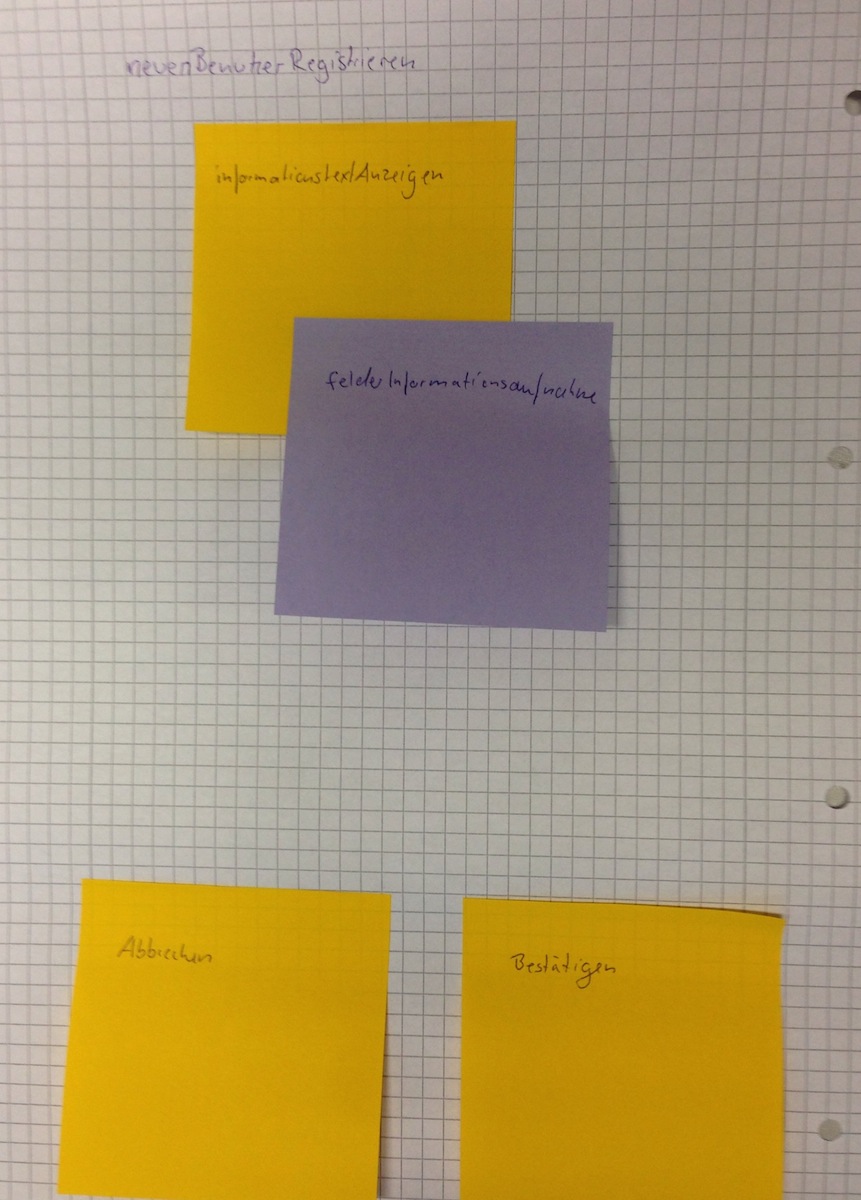 neuenBenutzerRegistrieren
informationstextAnzeigen
felderInformationsaufnahme
Abbrechen
Bestätigen